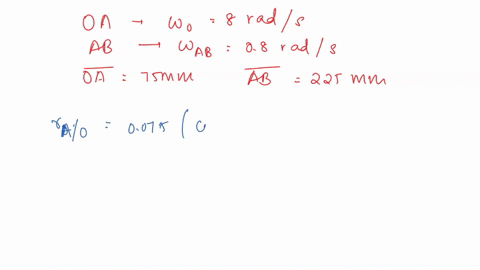 OA → ω₀ = 8 rad/s
AB → ω_AB = 0.8 rad/s
O̅A̅ = 75mm A̅B̅ = 225 mm
r_A/O = 0.075 ( c